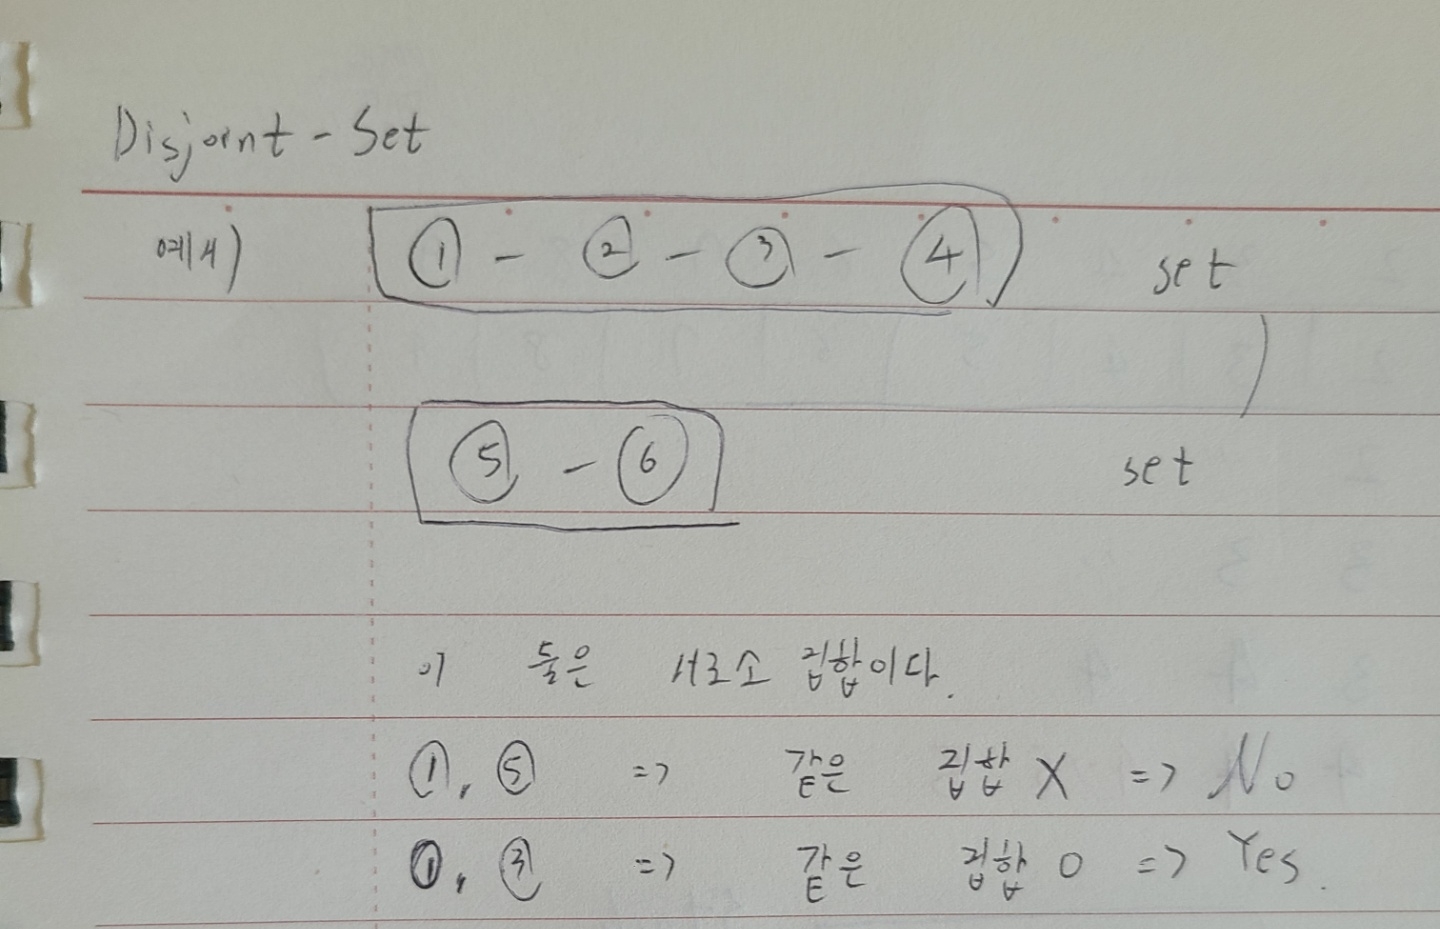 Disjoint - Set
예시) ① - ② - ③ - ④ set
⑤ - ⑥ set
이 둘은 서로소 집합이다.
①, ⑤ => 같은 집합 X => No
①, ③ => 같은 집합 O => Yes.